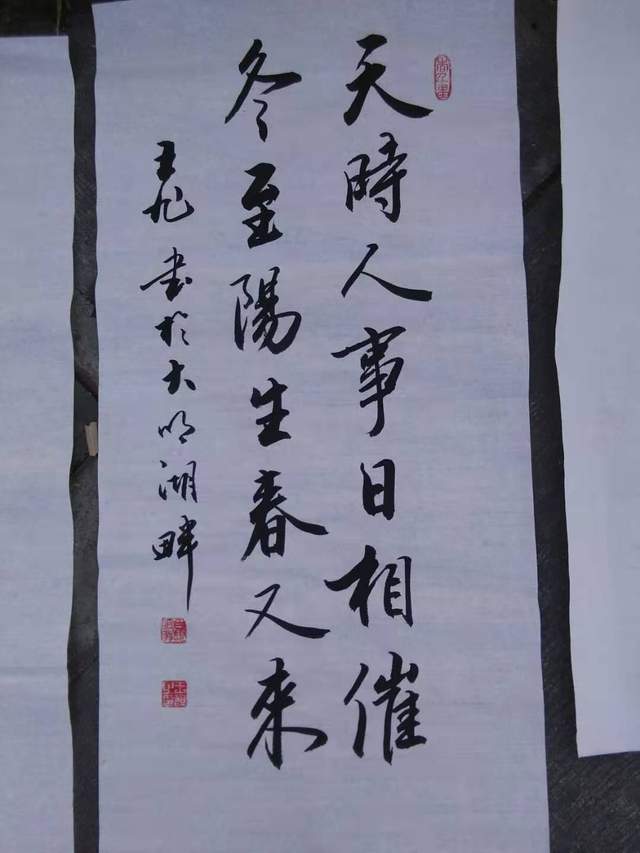 天時人事日相催
冬至陽生春又来
王旭 书於大明湖畔